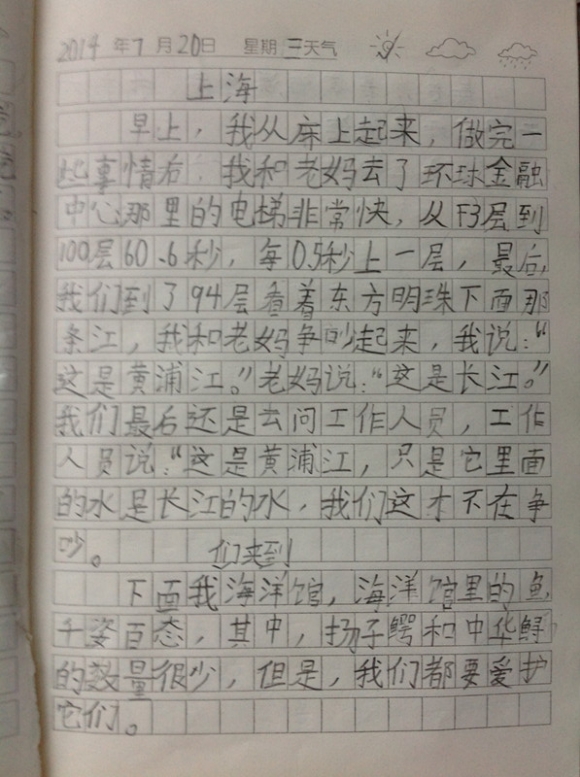 2014 年 7 月 20日 星期 三 天气
上海
早上，我从床上起来，做完一
些事情后，我和老妈去了环球金融
中心那里的电梯非常快，从F3层到
100层60.6秒，每0.5秒上一层，最后，
我们到了94层看着东方明珠下面那
条江，我和老妈争吵起来，我说：“
这是黄浦江。”老妈说：“这是长江。”
我们最后还是去问工作人员，工作
人员说：“这是黄浦江，只是它里面
的水是长江的水，我们这才不在争
吵。
们来到
下面我海洋馆，海洋馆里的鱼
千姿百态，其中，扬子鳄和中华鲟
的数量很少，但是，我们都要爱护
它们。